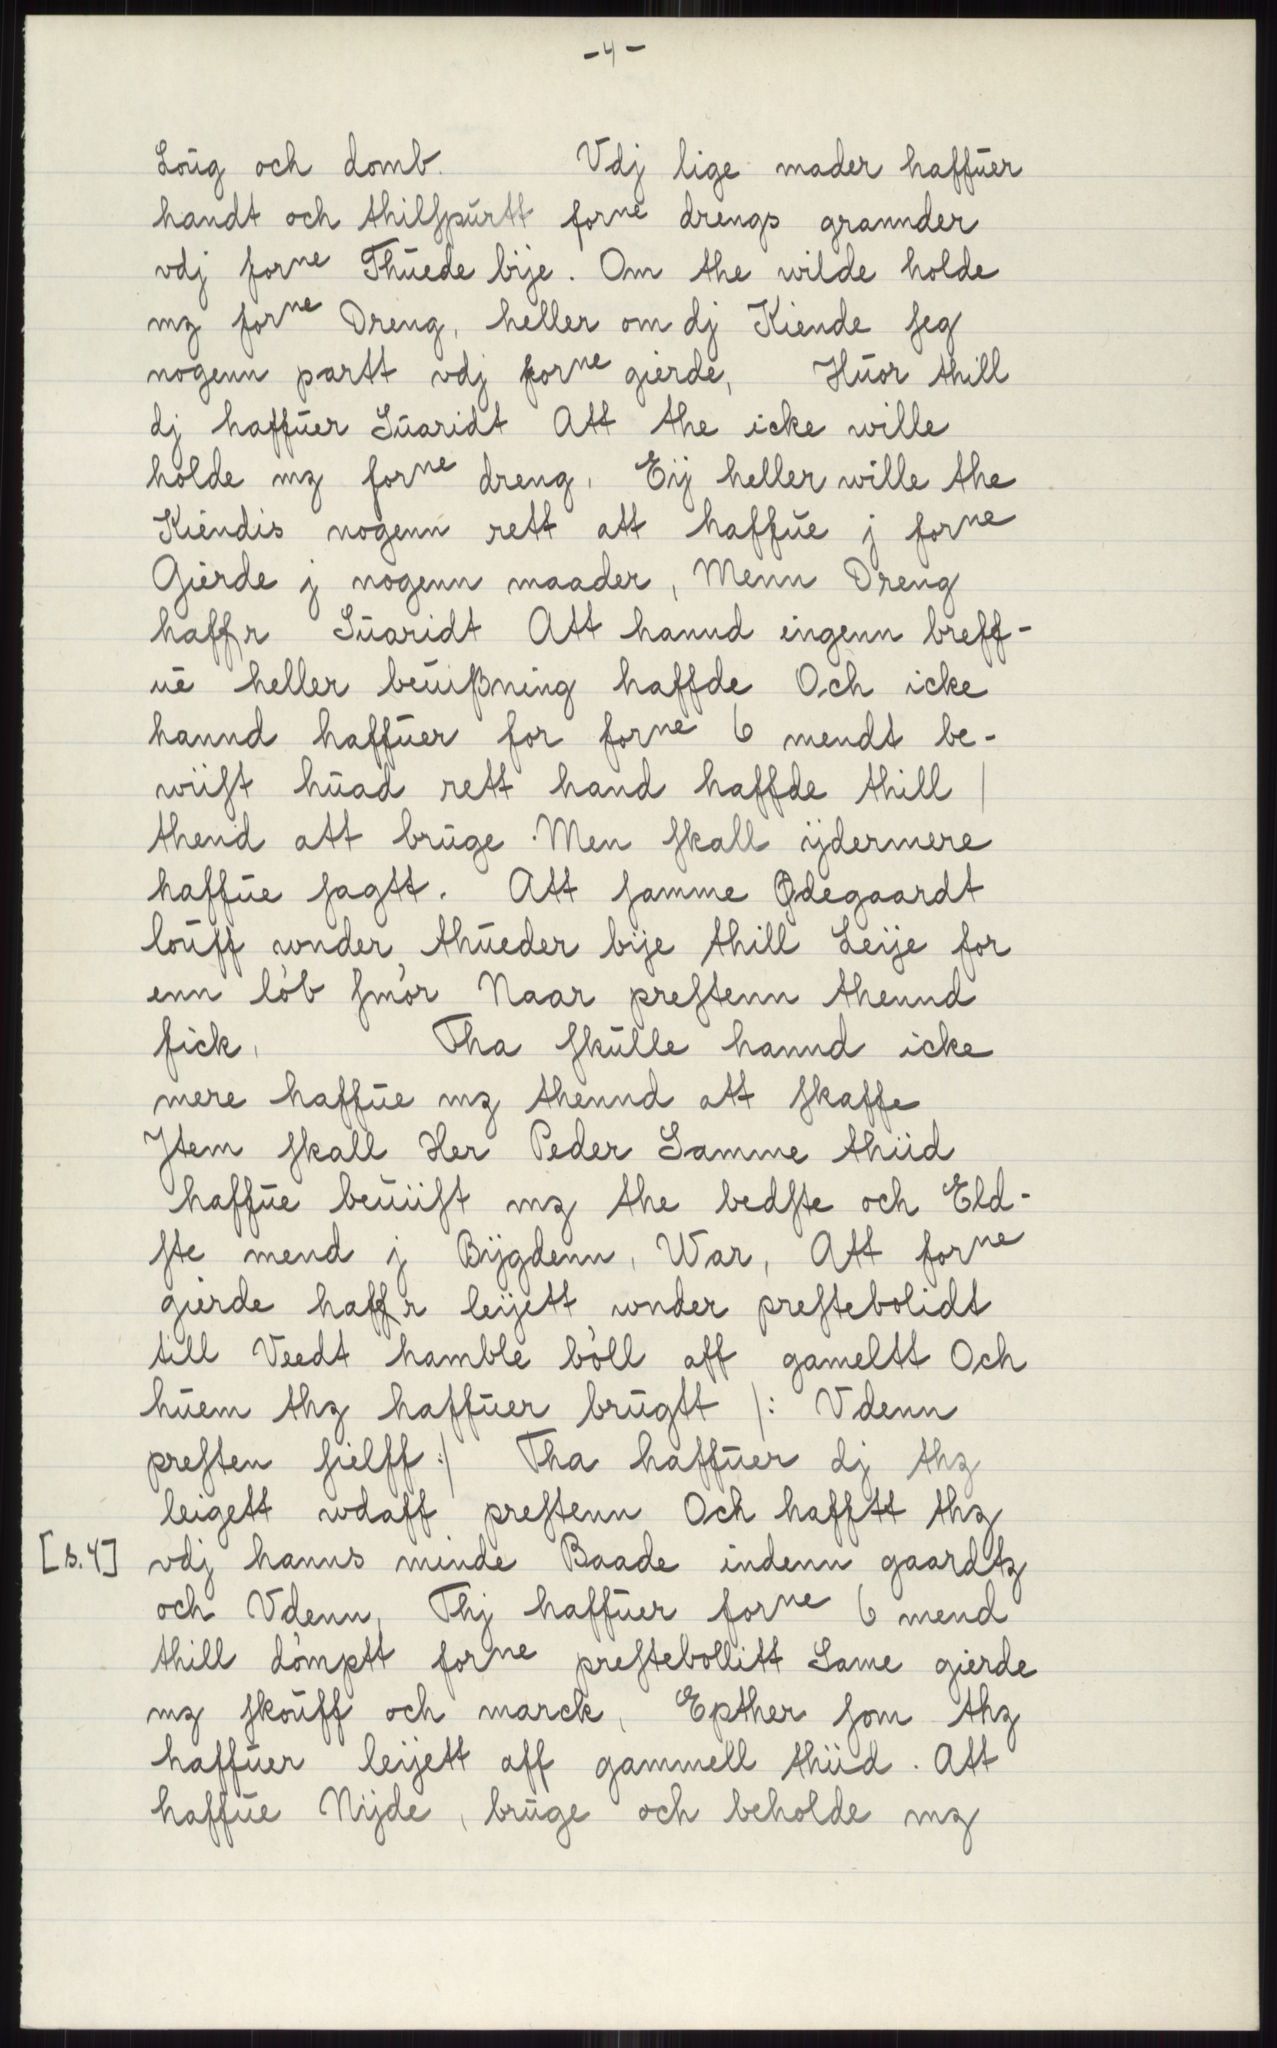 -4-
Loũg och domb. Vdj lige mader haffũer
handt och thilſpũrtt forne drengs grannder
vdj forne Thũede bije. Om the wilde holde
mz forne Dreng, heller om dj Kiende ſeg
nogenn partt vdj forne gierde, Hũor thill
dj haffũer Sũaridt Att the icke wille
holde mz forne dreng, Eij heller wille the
Kiendis nogenn rett att haffũe j forne
Gierde j nogenn maader, Menn Dreng
haffr Sũaridt Att hannd eingenn breff-
ũe heller beũiſsning haffde Och icke
hannd haffũer for forne 6 mendt be-
wiiſt hũad rett hand haffde thill /
thend att brũge. Men ſkall ijdermere
haffũe ſagtt. Att ſamme Ødegaardt
loũff wnder thũeder bije thill Leije for
enn lòb ſmòr Naar preſtenn thennd
fick, Tha ſkũlle hannd icke
mere haffũe mz thennd att ſkaffe
Jtem ſkall Her Peder Samme thiid
haffũe beũiiſt mz the bedſte och Eld-
ſte mend j Bijgdenn, War, Att forne
gierde haffr leijett wnder preſtebolidt
till Veedt hamble bòll aff gameltt Och
hũem thz haffũer brũgtt /: Vdenn
preſten ſielff :/ Tha haffũer dj thz
leigett wdaff preſtenn Och hafftt thz
[s. 4] vdj hanns minde Baade indenn gaardtz
och Vdenn, Thj haffũer forne 6 mend
thill dòmptt forne preſtebollitt Same gierde
mz ſkoũff och marck, Epther ſom thz
haffũer leijett aff gammell thiid. Att
haffũe Nijde, brũge och beholde mz